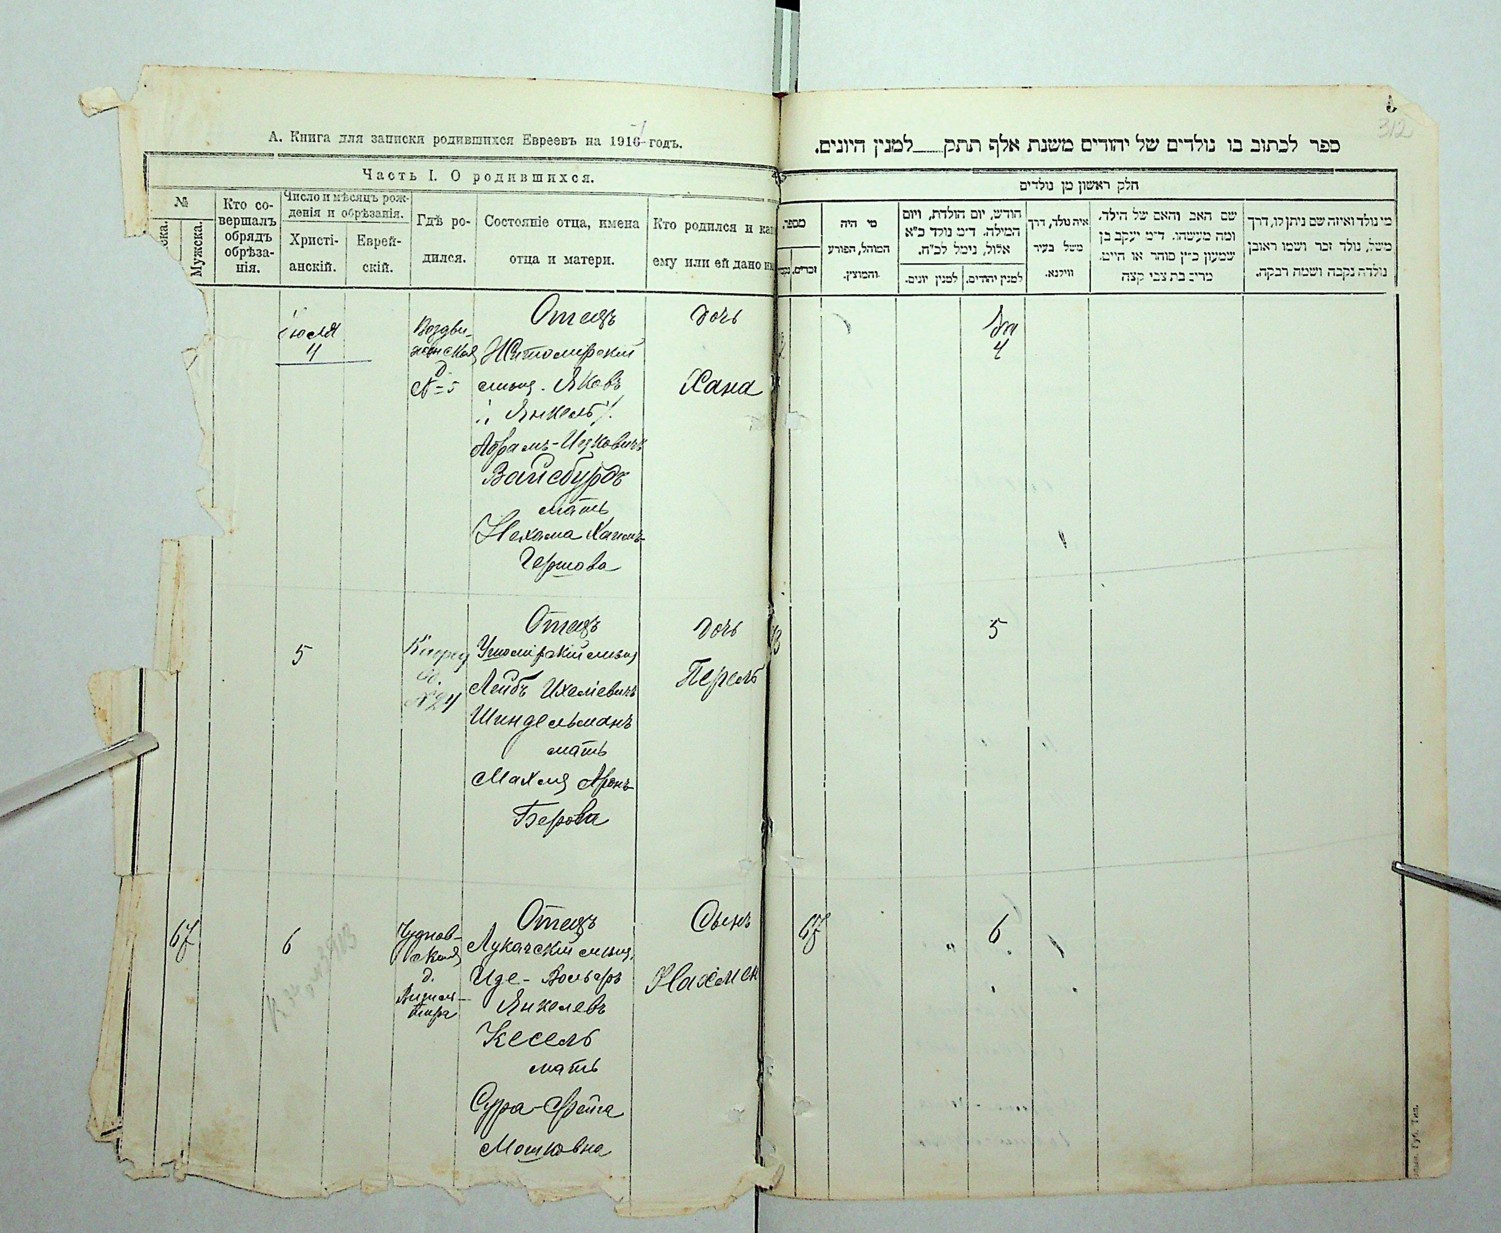 А. Книга для записки родившихся Евреевъ на 1916 годъ.
Часть I. О родившихся.
№
Мужска.
Кто со-
вершалъ
обрядъ
обрѣза-
нія.
Число и мѣсяцъ рож-
денія и обрѣзанія.
Христі-
анскій.
Еврей-
скій.
Гдѣ ро-
дился.
Состояніе отца, имена
отца и матери.
Кто родился и
ему или ей дано
Іюля
4
Воздви-
женская
д.
№ 5
Отецъ
Житомірскій
мѣщ. Яковъ
Янкель
Абрамъ-Ицковичъ
Вайсбурдъ
мать
Нехама Хаимъ-
Гершова
Дочь
Хана
5
д.
№ 24
Отецъ
Ушомірскій мѣщ
Лейбъ Ихелевичъ
Шиндельманъ
мать
Махля Аронъ-
Берова
Дочь
Перель
67
6
Чуднов-
ская
д.
Отецъ
Лукачскій мѣщ.
Иде-Вольфъ
Янкелевъ
Кесель
мать
Сура-Фрейга
Мошковна
Сынъ
Нахман
312
ספר לכתוב בו נולדים של יהודים משנת אלף תתק___למנין היונים.
חלק ראשון מן נולדים
מספר.
זכרים.
מי היה
המוהל, הפורע
והמוצץ.
חודש, יום הולדת, ויום
המילה. ד״מ נולד כ״א
אלול, נימל לכ״ח.
למנין יונים.
למנין יהודים.
איה נולד, דרך
משל בעיר
ווילנא.
שם האב והאם של הילד.
ומה מעשהו. ד״מ יעקב בן
שמעון כ״ץ סוחר או חייט.
מרים בת צבי קצה
מי נולד ואיזה שם ניתן לו, דרך
משל, נולד זכר ושמו ראובן
נולדה נקבה ושמה רבקה.
4
5
67
6
Губ. Тип.